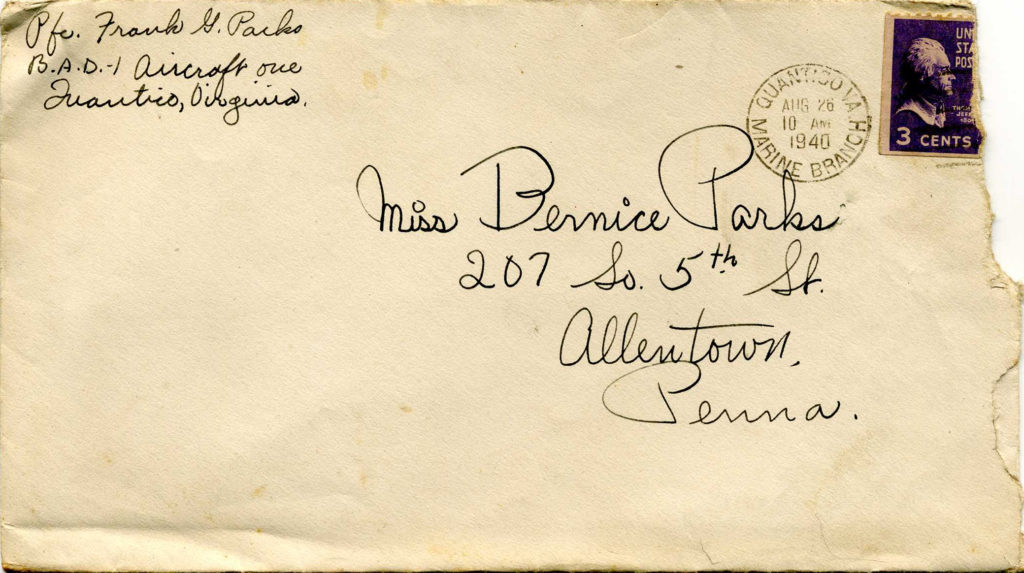 Pfc. Frank G. Parks
B.A.D.-1 Aircraft one
Quantico, Virginia.
QUANTICO VA.
AUG 26
10 AM
1940
MARINE BRANCH
UN
STA
POS
THOM
JEFF
3 CENTS
Miss Bernice Parks
207 So. 5th St.
Allentown,
Penna.